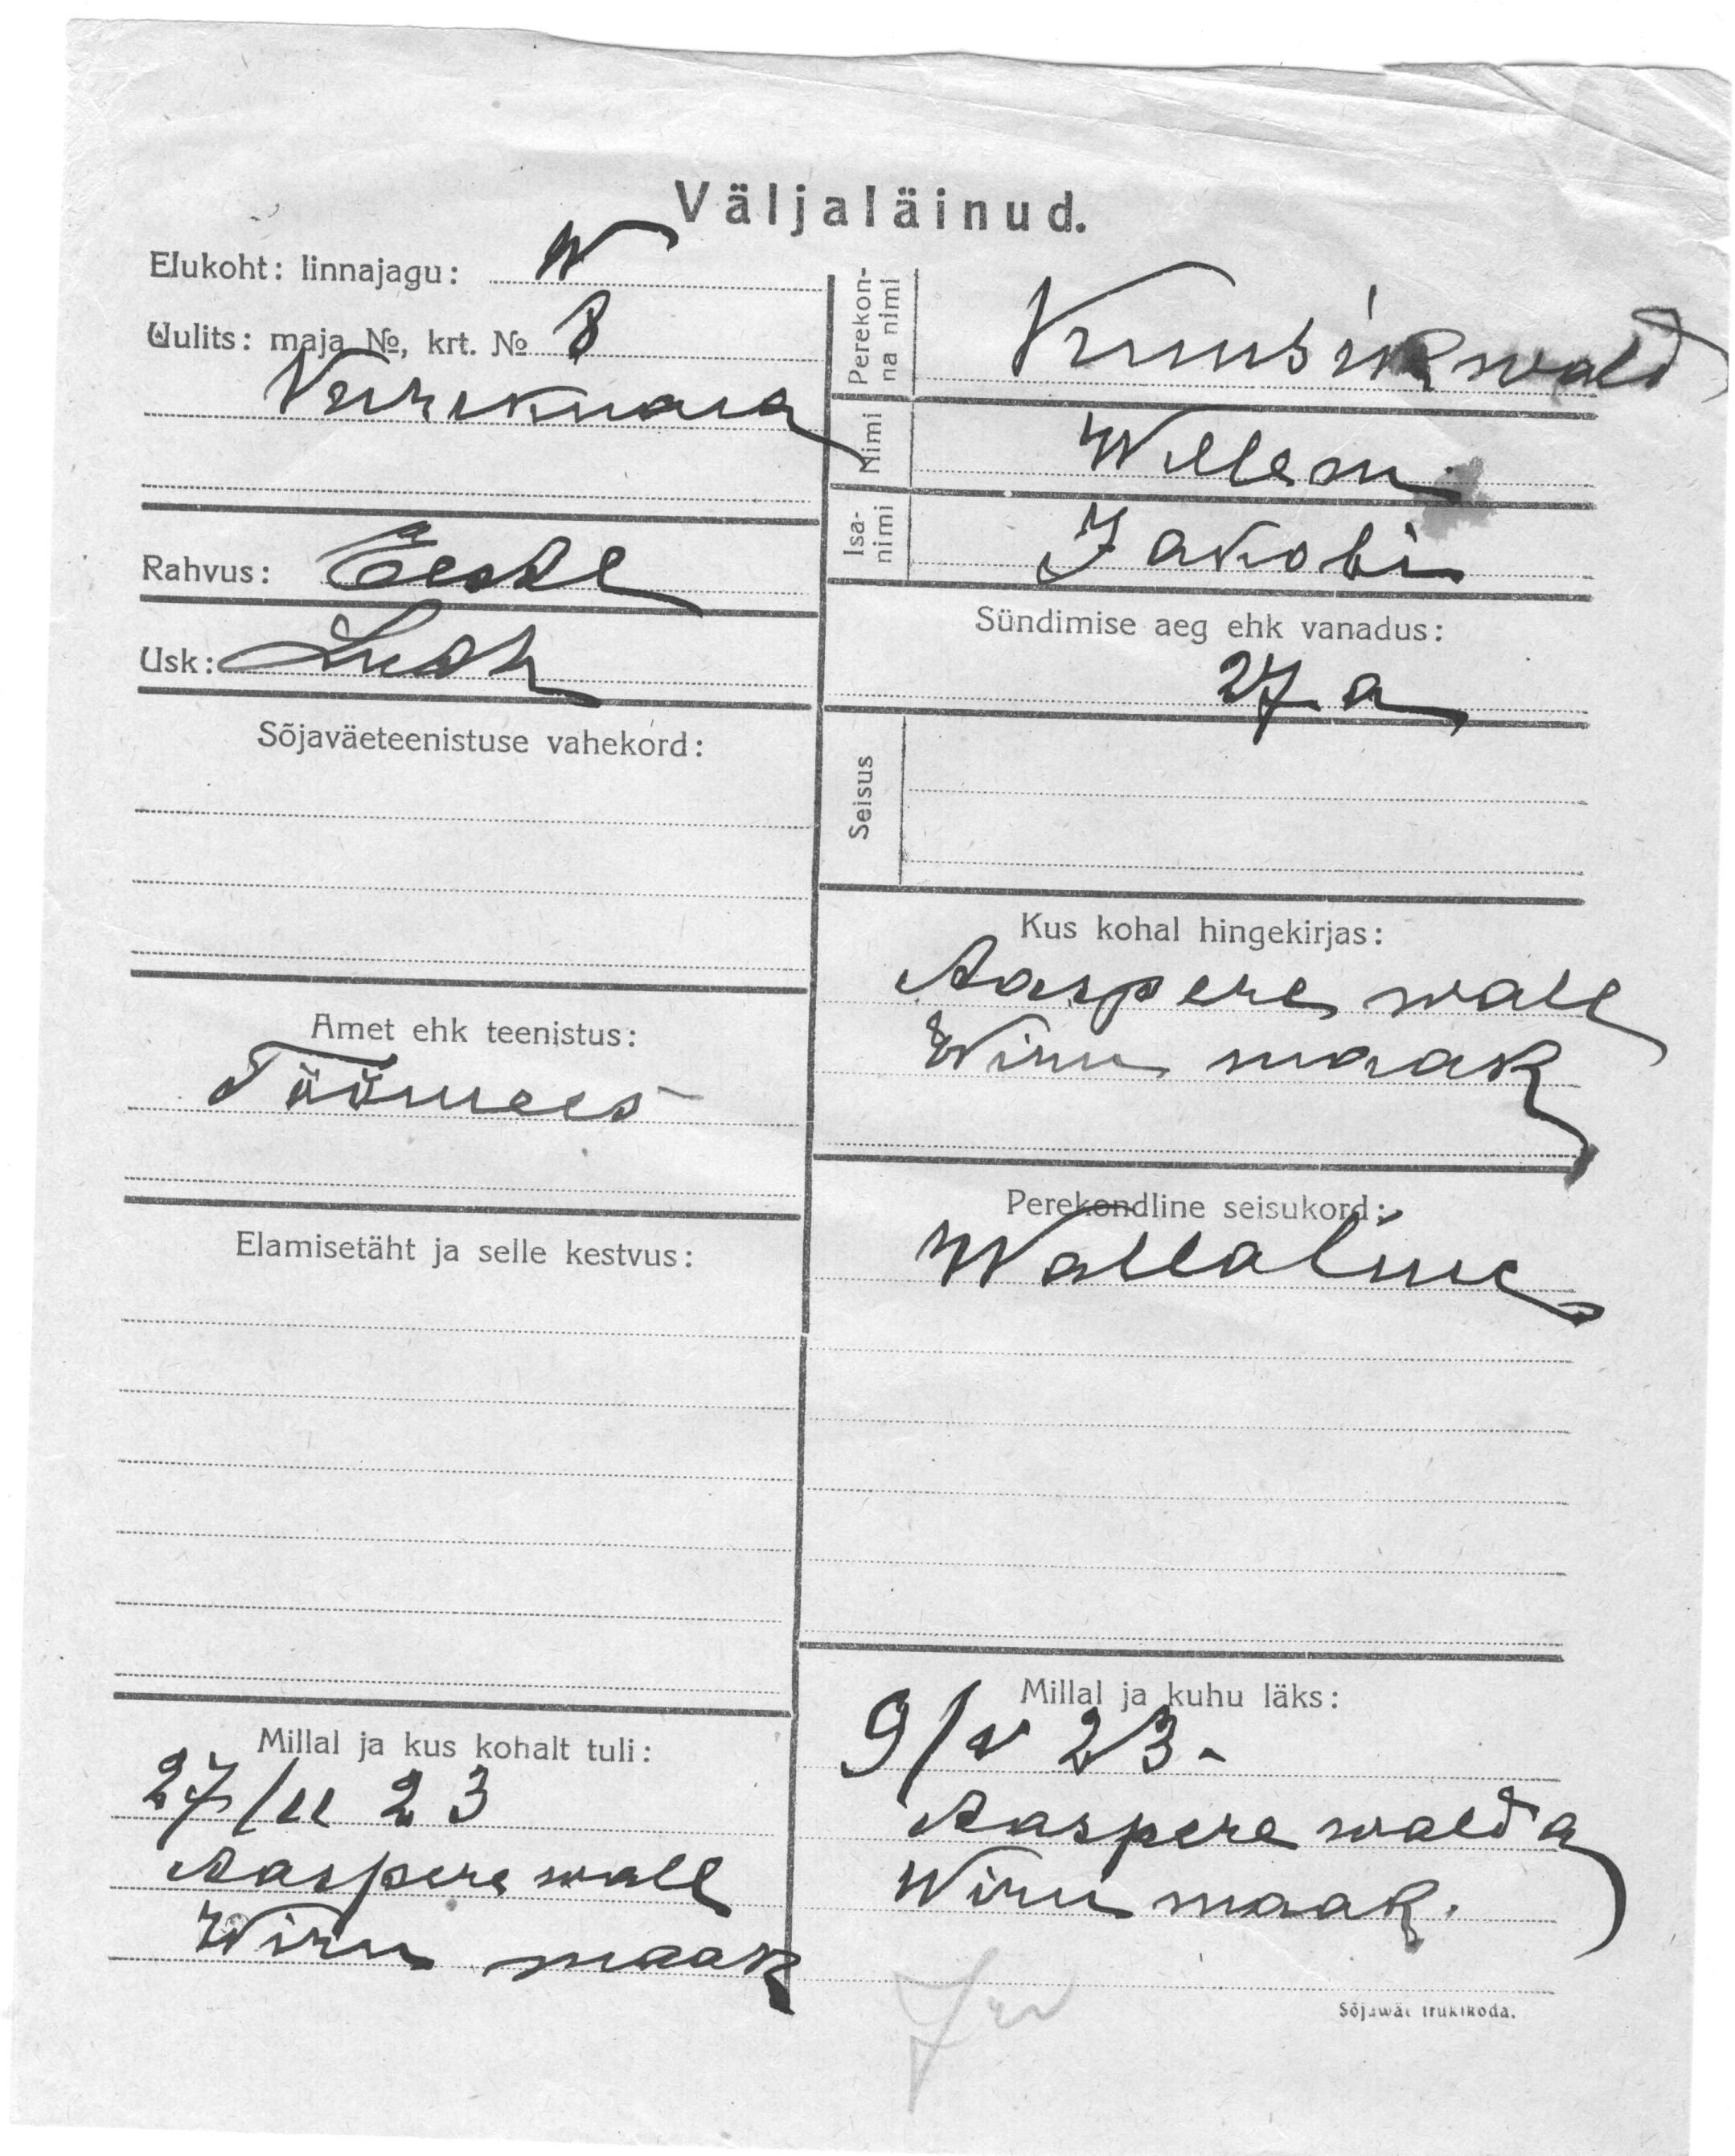 Väljaläinud.
Elukoht: linnajagu: W
Uulits: maja №, krt. № 8
Rahvus: Eesti
Usk: Luth
Sõjaväeteenistuse vahekord:
Amet ehk teenistus:
Töömees
Elamisetäht ja selle kestvus:
Millal ja kus kohalt tuli:
27/II 23
Aaspere wall
Wiru maak
Perekon-
na nimi
Kuusikwald
Nimi
Willem
Isa-
nimi
Jakobi
Sündimise aeg ehk vanadus:
27 a
Seisus
Kus kohal hingekirjas:
Aaspere wall
Wiru maak
Perekondline seisukord:
Wallaline
Millal ja kuhu läks:
9/V 23.
Aaspere walda
Wiru maak.
Sõjawäe trükikoda.